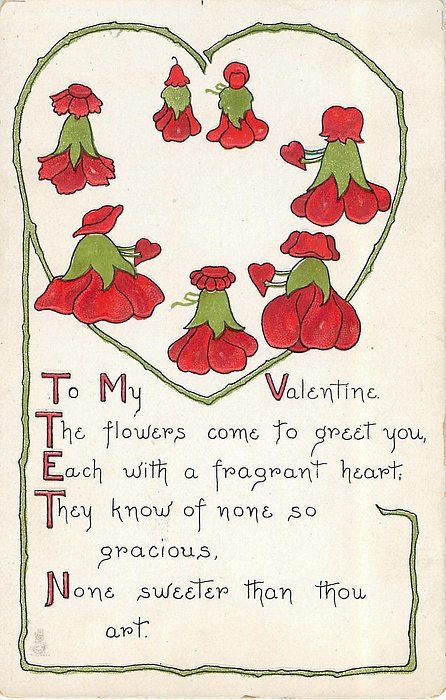 To My Valentine.
The flowers come to greet you,
Each with a fragrant heart;
They know of none so
gracious,
None sweeter than thou
art.